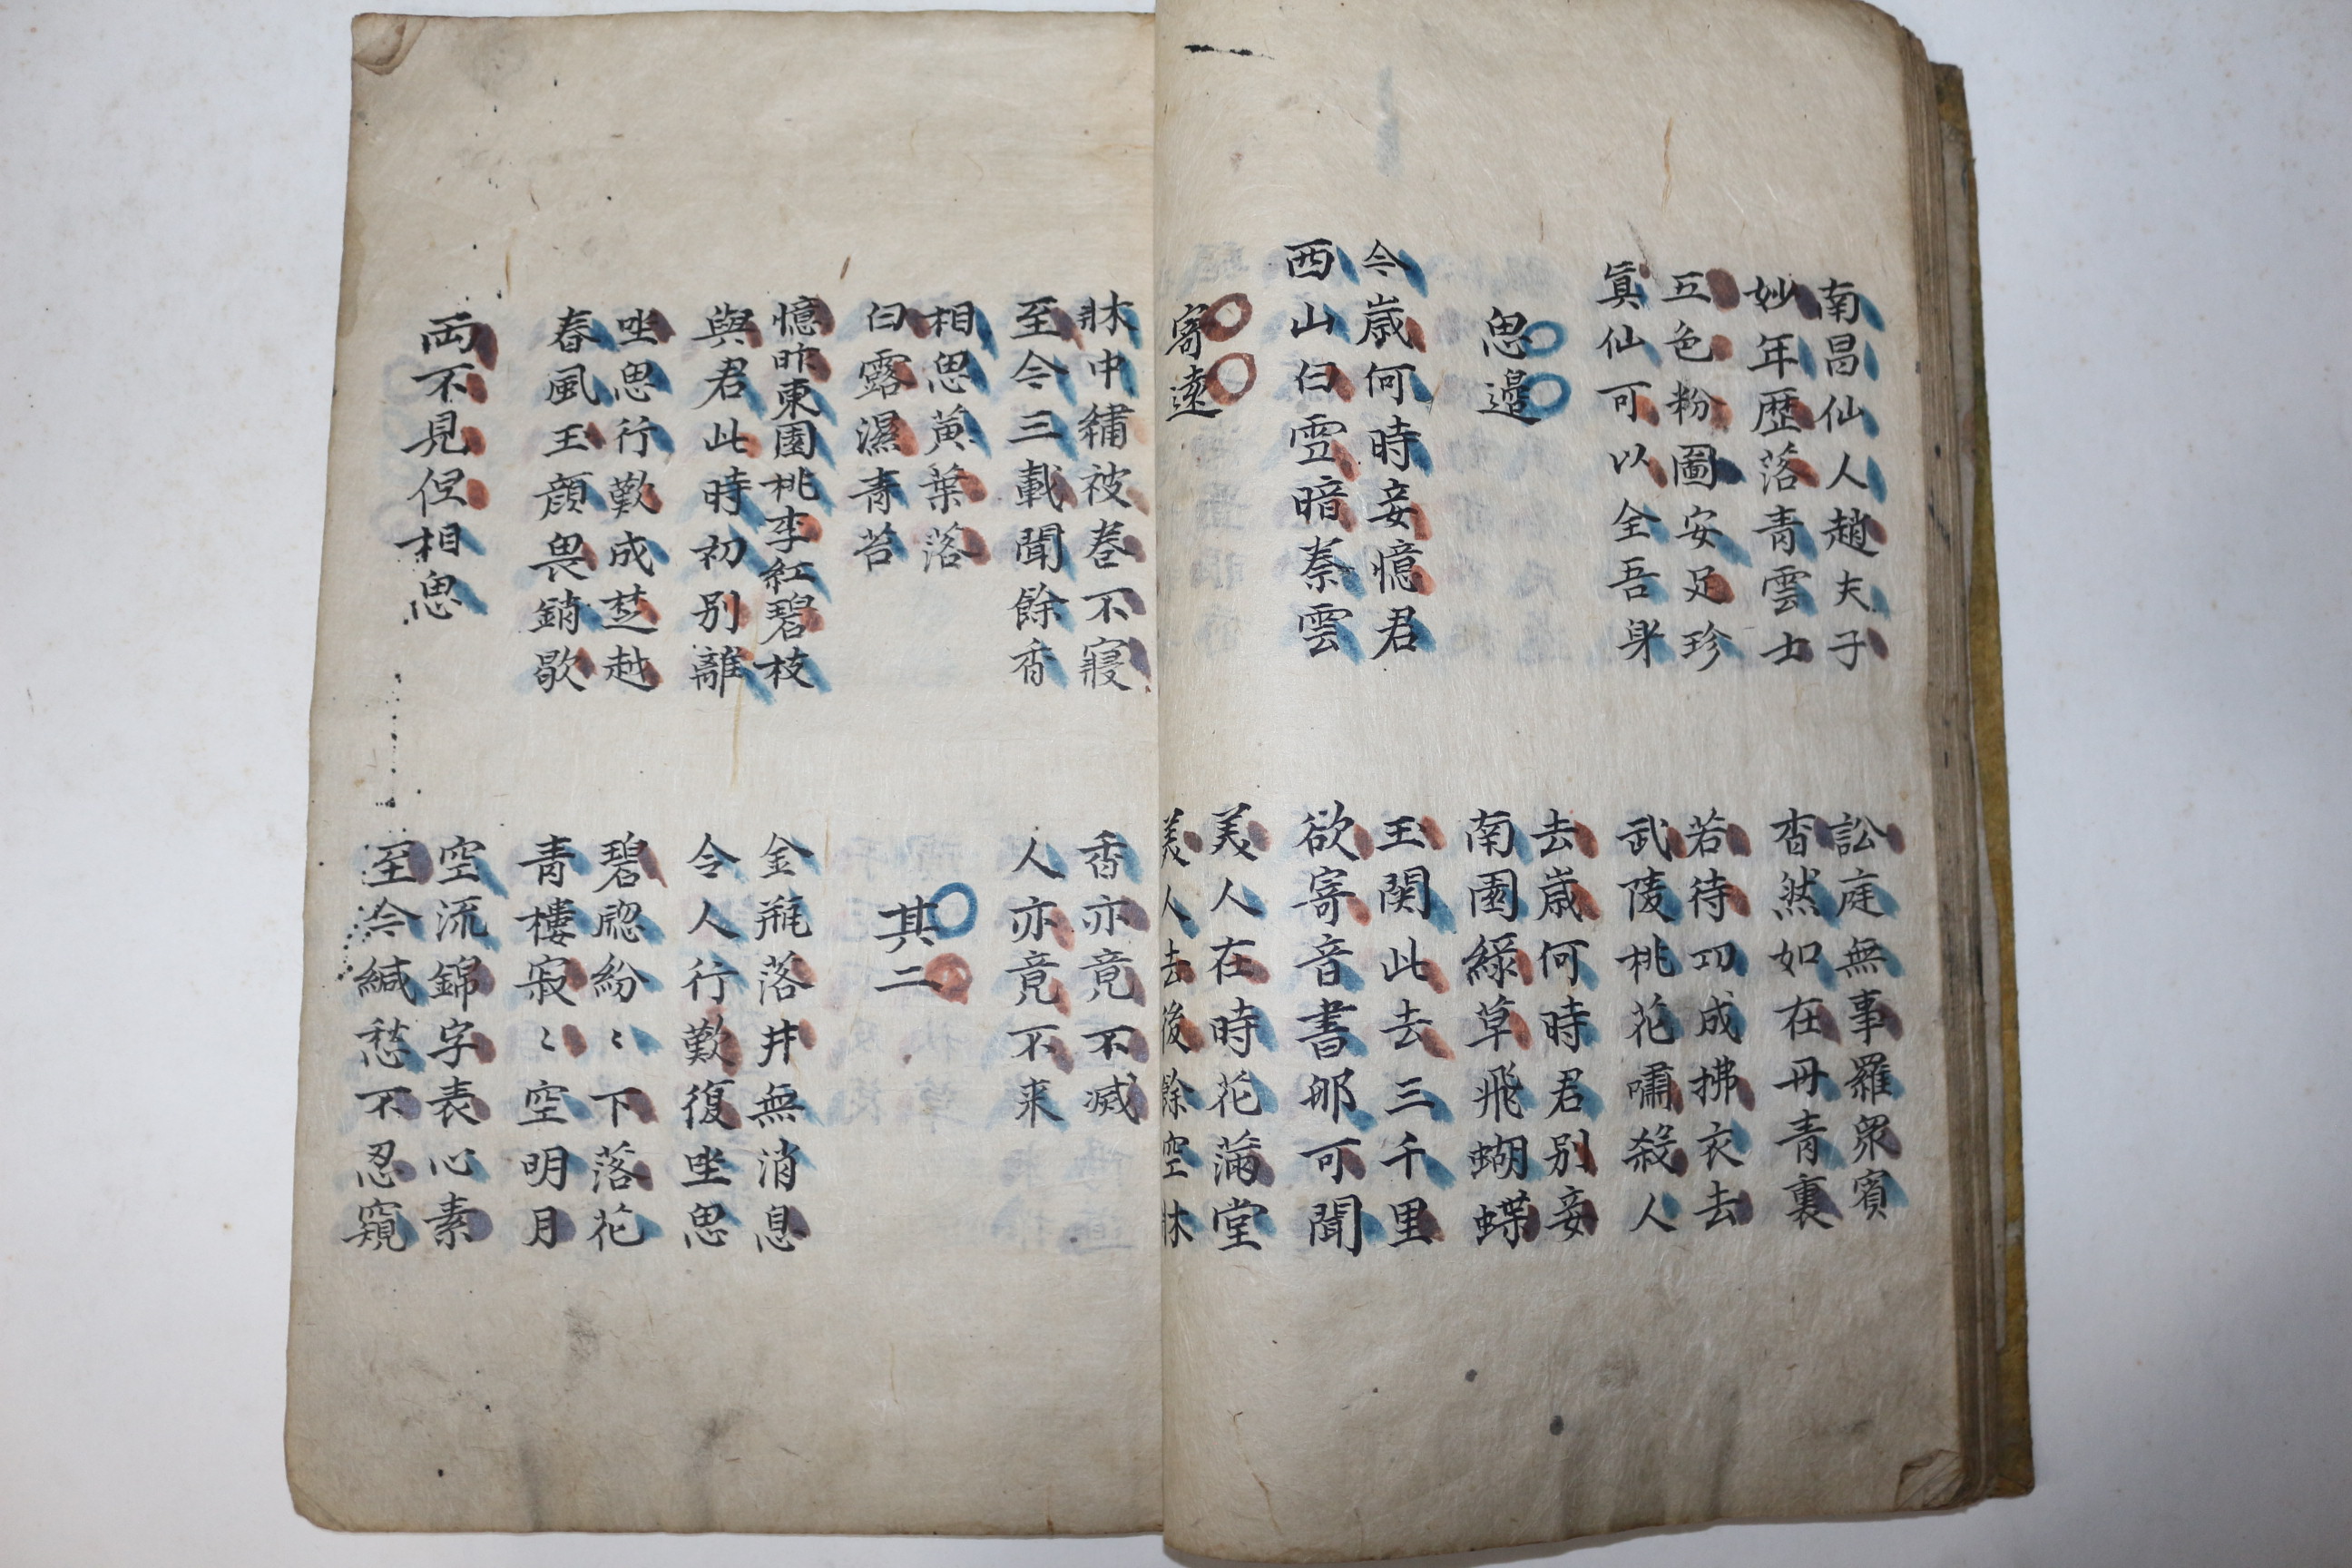 南昌仙人趙夫子
妙年歷落青雲士
訟庭無事羅衆賓
杳然如在丹青裏
五色粉圖安足珍
眞仙可以全吾身
若待功成拂衣去
武陵桃花嘯殺人
思邊
去歲何時君別妾
南園綠草飛蝴蝶
今歲何時妾憶君
西山白雪暗秦雲
玉関此去三千里
欲寄音書那可聞
寄遠
美人在時花滿堂
美人去後餘空牀
牀中繡被卷不寢
至今三載聞餘香
香亦竟不滅
人亦竟不来
相思黃葉落
白露濕青苔
其二
憶昨東園桃李紅碧枝
與君此時初别離
金瓶落井無消息
令人行歎復坐思
坐思行歎成楚越
春風玉顔畏銷歇
碧窓紛〻下落花
青樓寂〻空明月
両不見但相思
空流錦字表心素
至今緘愁不忍窺